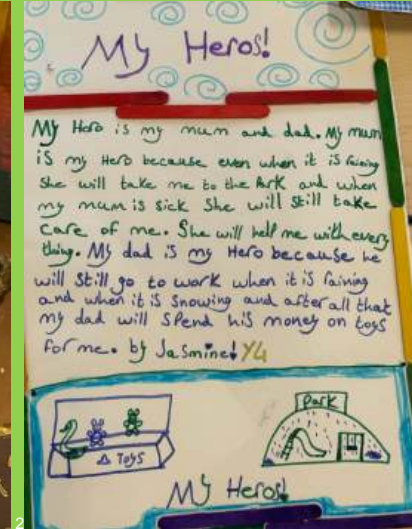 My Heros!
My Hero is my mum and dad. My mum
is my Hero because even when it is raining
She will take me to the Park and when
my mum is sick She will still take
care of me. She will help me with every
thing. My dad is my Hero because he
will still go to work when it is raining
and when it is snowing and after all that
my dad will spend his money on toys
for me. by Jasmine! Y4
Park
Toys
My Heros!
2